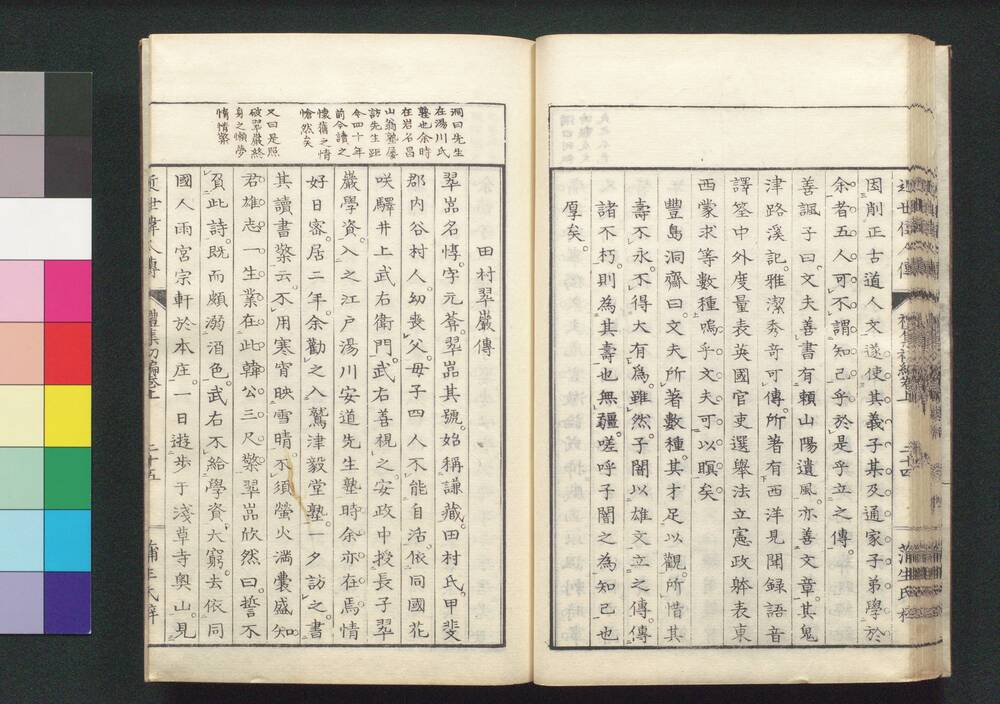 因削正古道人文遂使其義子某及通家子弟學於
余者五人可不謂知己乎於是乎立之傳
善諷子曰文夫善書有賴山陽遺風亦善文章其鬼
津路溪記雅潔秀奇可傳所著有西洋見聞録語音
譯筌中外度量表英國官吏選舉法立憲政躰表東
西蒙求等數種嗚乎文夫可以瞑矣
豐島洞齋曰文夫所著數種其才足以觀所惜其
壽不永不得大有為雖然子闇以雄文立之傳傳
諸不朽則為其壽也無疆嗟呼子闇之為知己也
厚矣
二十四
蒲生氏
田村翠巖傳
翠嵓名惇字元󠄁
翠嵓其號始稱謙藏田村氏甲斐
郡内谷村人幼喪父母子四人不能自活依同國花
咲驛井上武右衛門武右善視之安政中授長子翠
巖學資入之江戸湯川安道先生塾時余亦在焉情
好日密居二年余勸之入鷲津毅堂塾一夕訪之書
其讀書檠云不用寒宵映雪晴不須螢火滿囊盛知
君雄志一生業在此韓公三尺檠翠嵓欣然曰誓不
負此詩既而頗溺酒色武右不給學資大窮去依同
國人雨宮宗軒於本庄一日遊歩于淺草寺奥山見
洞曰先生
在湯川氏
塾也余時
在岩名昌
山翁塾屡
訪先生距
今四十年
前今讀之
懷舊之情
愴然矣
又曰是照
破翠巖終
身之懶夢
惰情檠
近世偉人傳
禮集初編卷上
二十五
蒲生氏梓